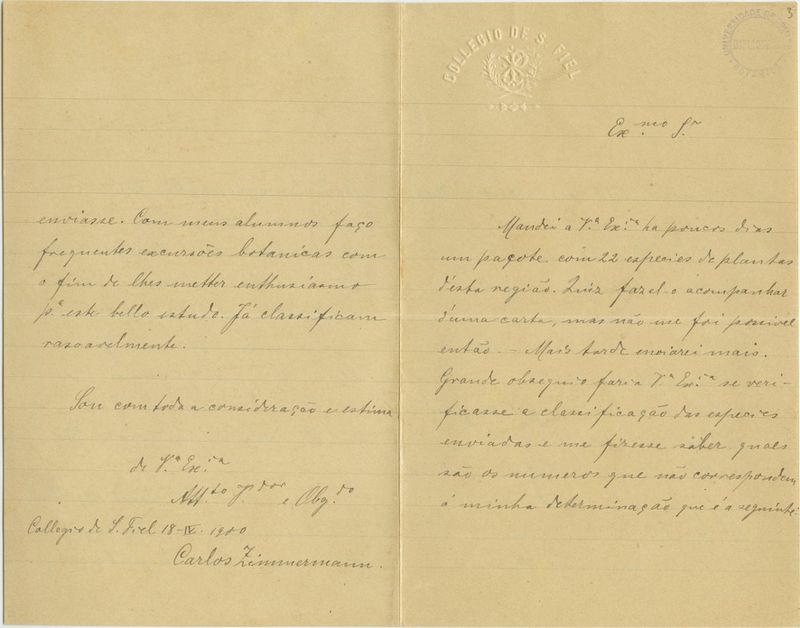 COLLEGIO DE S. FIEL
3
Ex.mo Sr
Mandei a V.ª Ex.ª ha poucos dias
um paçote com 22 especies de plantas
d'ésta região. Quiz fazel-o acompanhar
d'uma carta, mas não me foi possivel
então — Mais tarde enviarei mais.
Grande obsequio faria V.ª Ex.ª se veri-
ficasse a classificação das especies
enviadas e me fizesse saber quaes
são os numeros que não correspondem
á minha determinação que é a seguinte
enviasse. Com meus alumnos faço
frequentes excursões botanicas com
o fim de lhes metter enthusiasmo
p.ª este bello estudo. Já classificam
rasoavelmente.
Sou com toda a consideração e estima
de V.ª Ex.ª
Att.to V.dor e Obg.do
Collegio de S. Fiel 18-IV. 1900
Carlos Zimmermann.